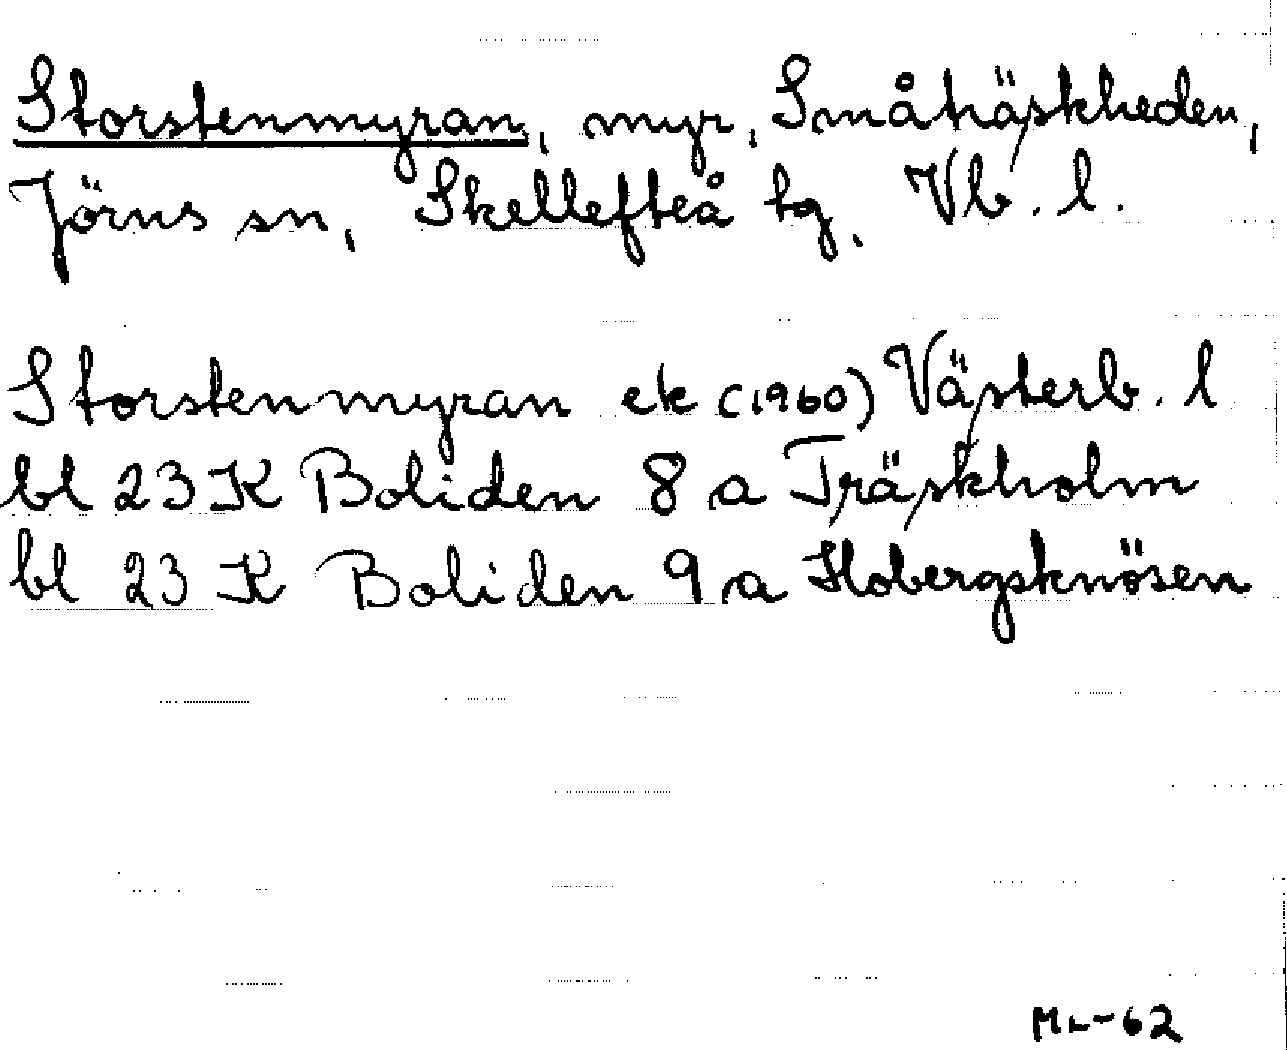 Storstenmyran, myr, Småträskheden,
Jörns sn, Skellefteå tg, Vb. l.
Storstenmyran ek (1960) Västerb. l
bl 23 K Boliden 8 a Träskholm
bl 23 K Boliden 9 a Hobergsknösen
ML-62